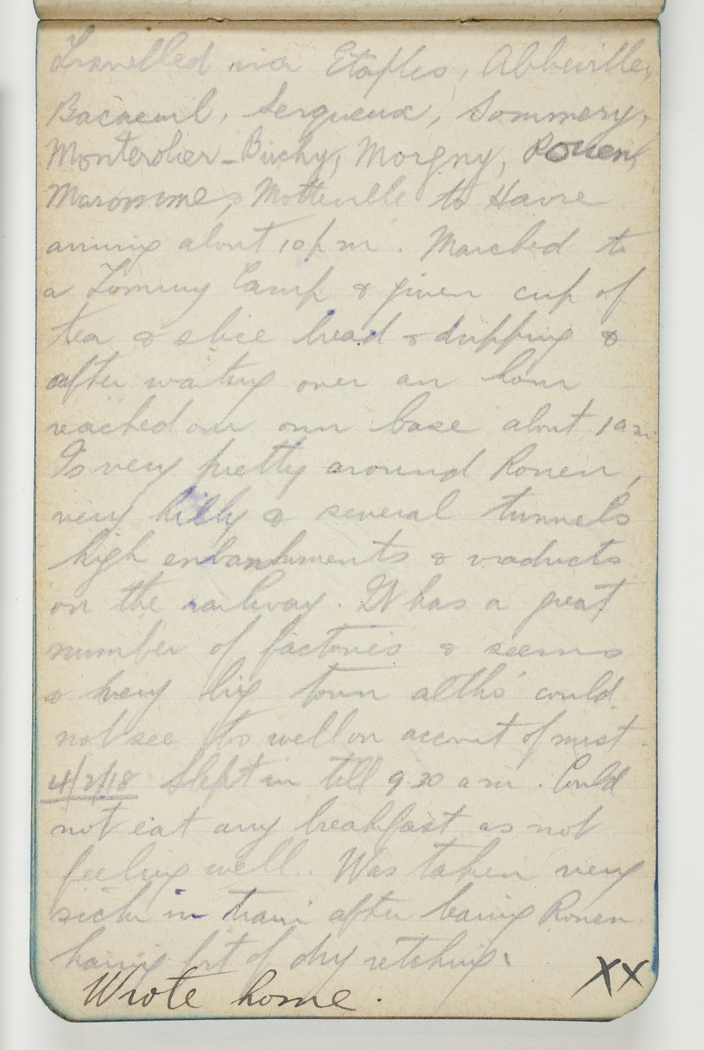 Travelled via Etaples, Abbeville,
Bacneuil, Serqueux, Sommery,
Monterolier-Buchy, Morgny, Rouen,
Maromme, Motteville to Havre
arriving about 10 p m. Marched to
a Tommy Camp & given cup of
tea & slice bread & dripping &
after waiting over an hour
reached our own base about 1 a m.
Is very pretty around Rouen,
very hilly & several tunnels
high enbankments & viaducts
on the railway. It has a great
number of factories & seems
a very big town altho' could
not see too well on account of mist.
4/2/18 Slept in till 9.30 a m. Could
not eat any breakfast as not
feeling well. Was taken very
sick in train after leaving Rouen
having bit of dry retching.
Wrote home. XX